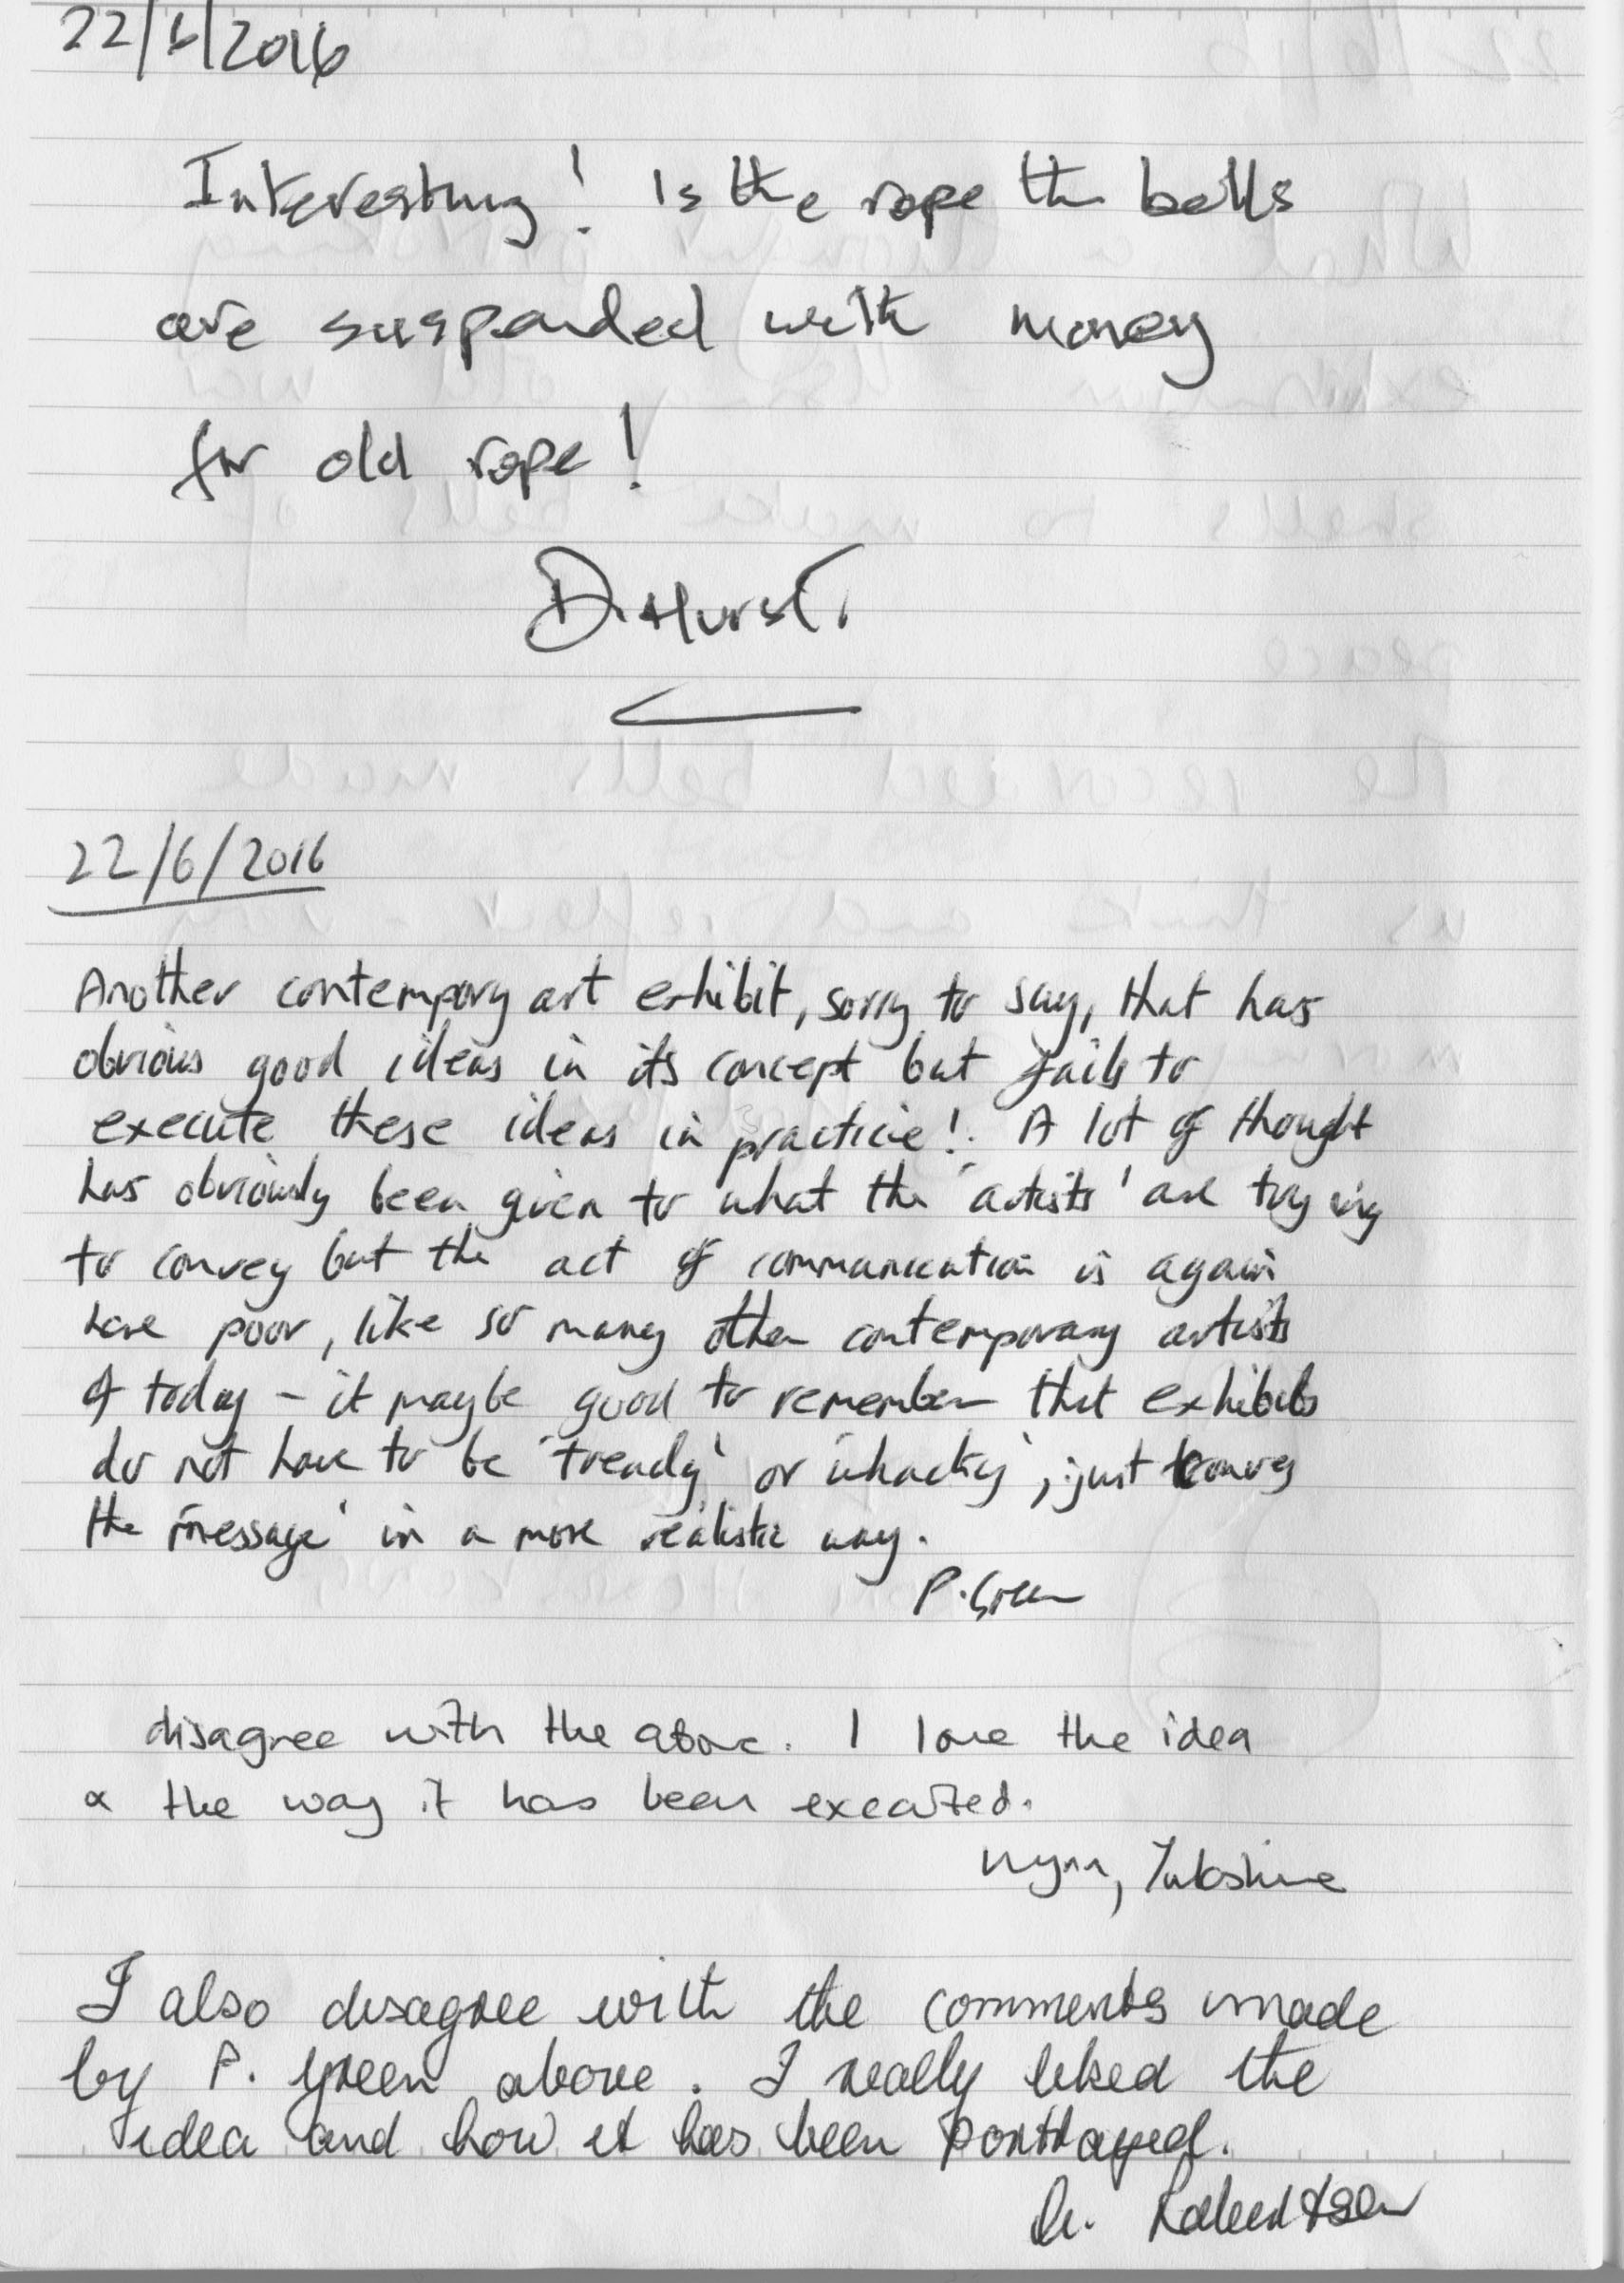 22/6/2016
Interesting! Is the rope the bells
are suspended with money
for old rope!
D. Hurst.
22/6/2016
Another contempory art exhibit, sorry to say, that has
obvious good ideas in its concept but fails to
execute these ideas in practice!. A lot of thought
has obviously been given to what the 'artists' are trying
to convey but the act of communication is again
here poor, like so many other contemporary artists
of today - it maybe good to remember that exhibits
do not have to be 'trendy' or 'whacky', just convey
the 'message' in a more realistic way.
P. Green
disagree with the above. I love the idea
& the way it has been executed.
Wynn,
I also disagree with the comments made
by P. Green above. I really liked the
idea and how it has been portrayed.